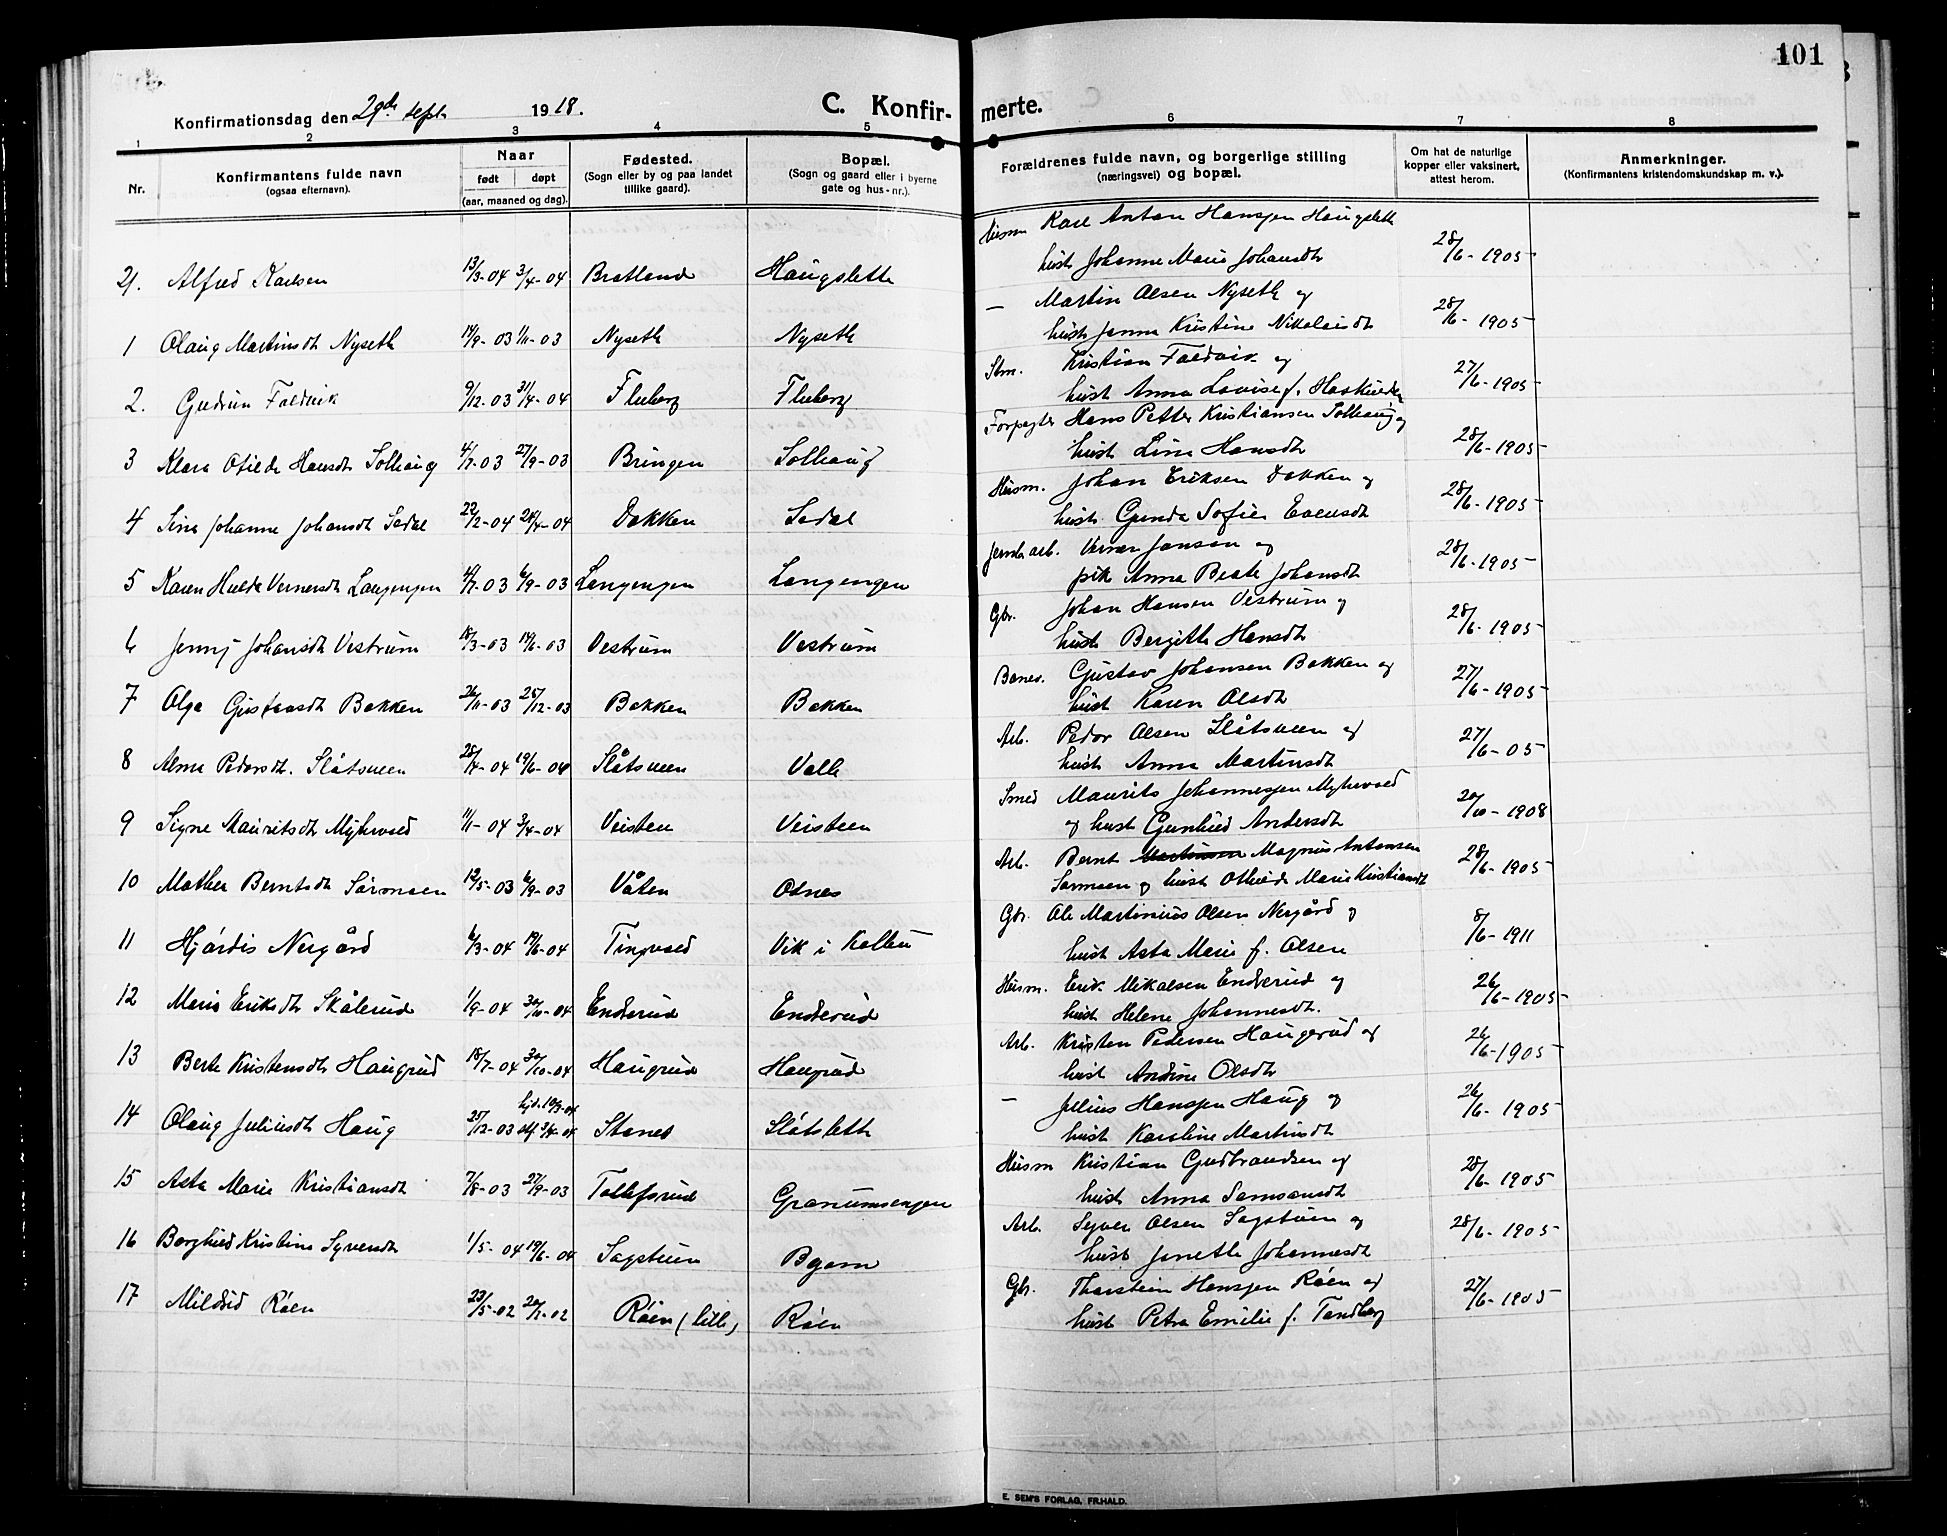 101
Konfirmationsdag den 29de sept. 1918.
C. Konfir- merte.
1 2 3 4 5 6 7 8
Nr.
Konfirmantens fulde navn
(ogsaa efternavn).
Naar
født døpt
(aar, maaned og dag).
Fødested.
(Sogn eller by og paa landet
tillike gaard).
Bopæl.
(Sogn og gaard eller i byerne
gate og hus-nr.).
Forældrenes fulde navn, og borgerlige stilling
(næringsvei) og bopæl.
Om hat de naturlige
kopper eller vaksinert,
attest herom.
Anmerkninger.
(Konfirmantens kristendomskundskap m. v.).
Husm Karl Anton Hansen Haugslette
21. Alfred Karlsen 13/3-04 3/4-04 Bratland Haugslette hust Johanne Marie Johansdt 28/6-1905
— Martin Olsen Nyseth og
1 Olaug Martinsdt Nyseth 14/9-03 1/11-03 Nyseth Nyseth hust Janna Kristine Nikolaisdt 28/6-1905
Stm. Kristian Foldvik og
2. Gudrun Foldvik 9/12-03 31/4-04 Fluberg Fluberg hust Anna Lovise f. 27/6-1905
Forpagter Hans Petter Kristiansen Solhaug og
3 Klara Otilde Hansdt Solhaug 4/7-03 27/9-03 Bringen Solhaug hust Line Hansdt 28/6-1905
Husm. Johan Eriksen Dokken og
4 Sina Johanne Johansdt Sedal 22/2-04 24/4-04 Dokken Sedal hust. Gunda Sofie Evensdt 28/6-1905
arb. Verner Jansen og
5 Karen Hulda Vernersdt Langengen 6/9-03 Langengen Langengen pik Anna Beate Johansdt 28/6-1905
Gbr. Johan Hansen Vestrum og
6 Jenny Johansdt Vestrum 18/3-03 14/6-03 Vestrum Vestrum hust Bergitte Hansdt 28/6-1905
Banev. Gustav Johansen Bakken og
7 Olga Gustavsdt Bakken 26/11-03 25/12-03 Bakken Bakken hust Karen Olsdt 27/6-1905
Arb. Peder Olsen Slåtsveen og
8 Alma Pedersdt. Slåtsveen 28/4-04 19/6-04 Slåtsveen Valle hust Anna Martinsdt 27/6-05
Smed Maurits Johannesen Myhrvold
9 Signe Mauritsdt Myhrvold 1/1-04 3/4-04 Veisten Veisteen og hust Gunhild Andersdt 20/10-1908
Arb. Bernt Martinsen Magnus Antonsen
10 Mathea Berntsdt Sørmoen 12/5-03 6/9-03 Våten Odnes Sørmoen og hust Othilde Marie Kristiansdt 28/6-1905
Gbr. Ole Martinius Olsen Nergård og
11 Hjørdis Nergård 6/3-04 19/6-04 Tingvold Vik i Kolbu hust Asta Marie f. Olsen 8/6-1911
Husm. Erik Mikalsen Enderud og
12 Marie Eriksdt Skålerud 1/9-04 30/10-04 Enderud Enderud hust Helene Johannesdt. 26/6-1905
Arb. Kristen Pedersen Haugerud og
13 Berte Kristensdt Haugrud 18/7-04 30/10-04 Haugrud Haugrud hust Andine Olsdt 26/6-1905
hjd. 10/3-04
— Julius Hansen Haug og
14 Olaug Juliusdt Haug 25/12-03 stf 3/4-04 Stenes Slåtslette hust Karoline Martinsdt 26/6-1905
Husm Kristian Gudbrandsen og
15 Asta Marie Kristiansdt 7/8-03 27/9-03 Tollefsrud Granumsengen hust Anna Samsonsdt 28/6-1905
Arb. Syver Olsen Sagstuen og
16 Borghild Kristine Syversdt 1/5-04 19/6-04 Sagstuen Bgarn hust Janette Johannesdt 28/6-1905
Gbr. Thorstein Hansen Røen og
17 Mildrid Røen 23/5-02 20/7-02 Røen (lille) Røen hust Petra Emilie f. Tandberg 27/6-1905
E. SEM'S FORLAG, FR.HALD.